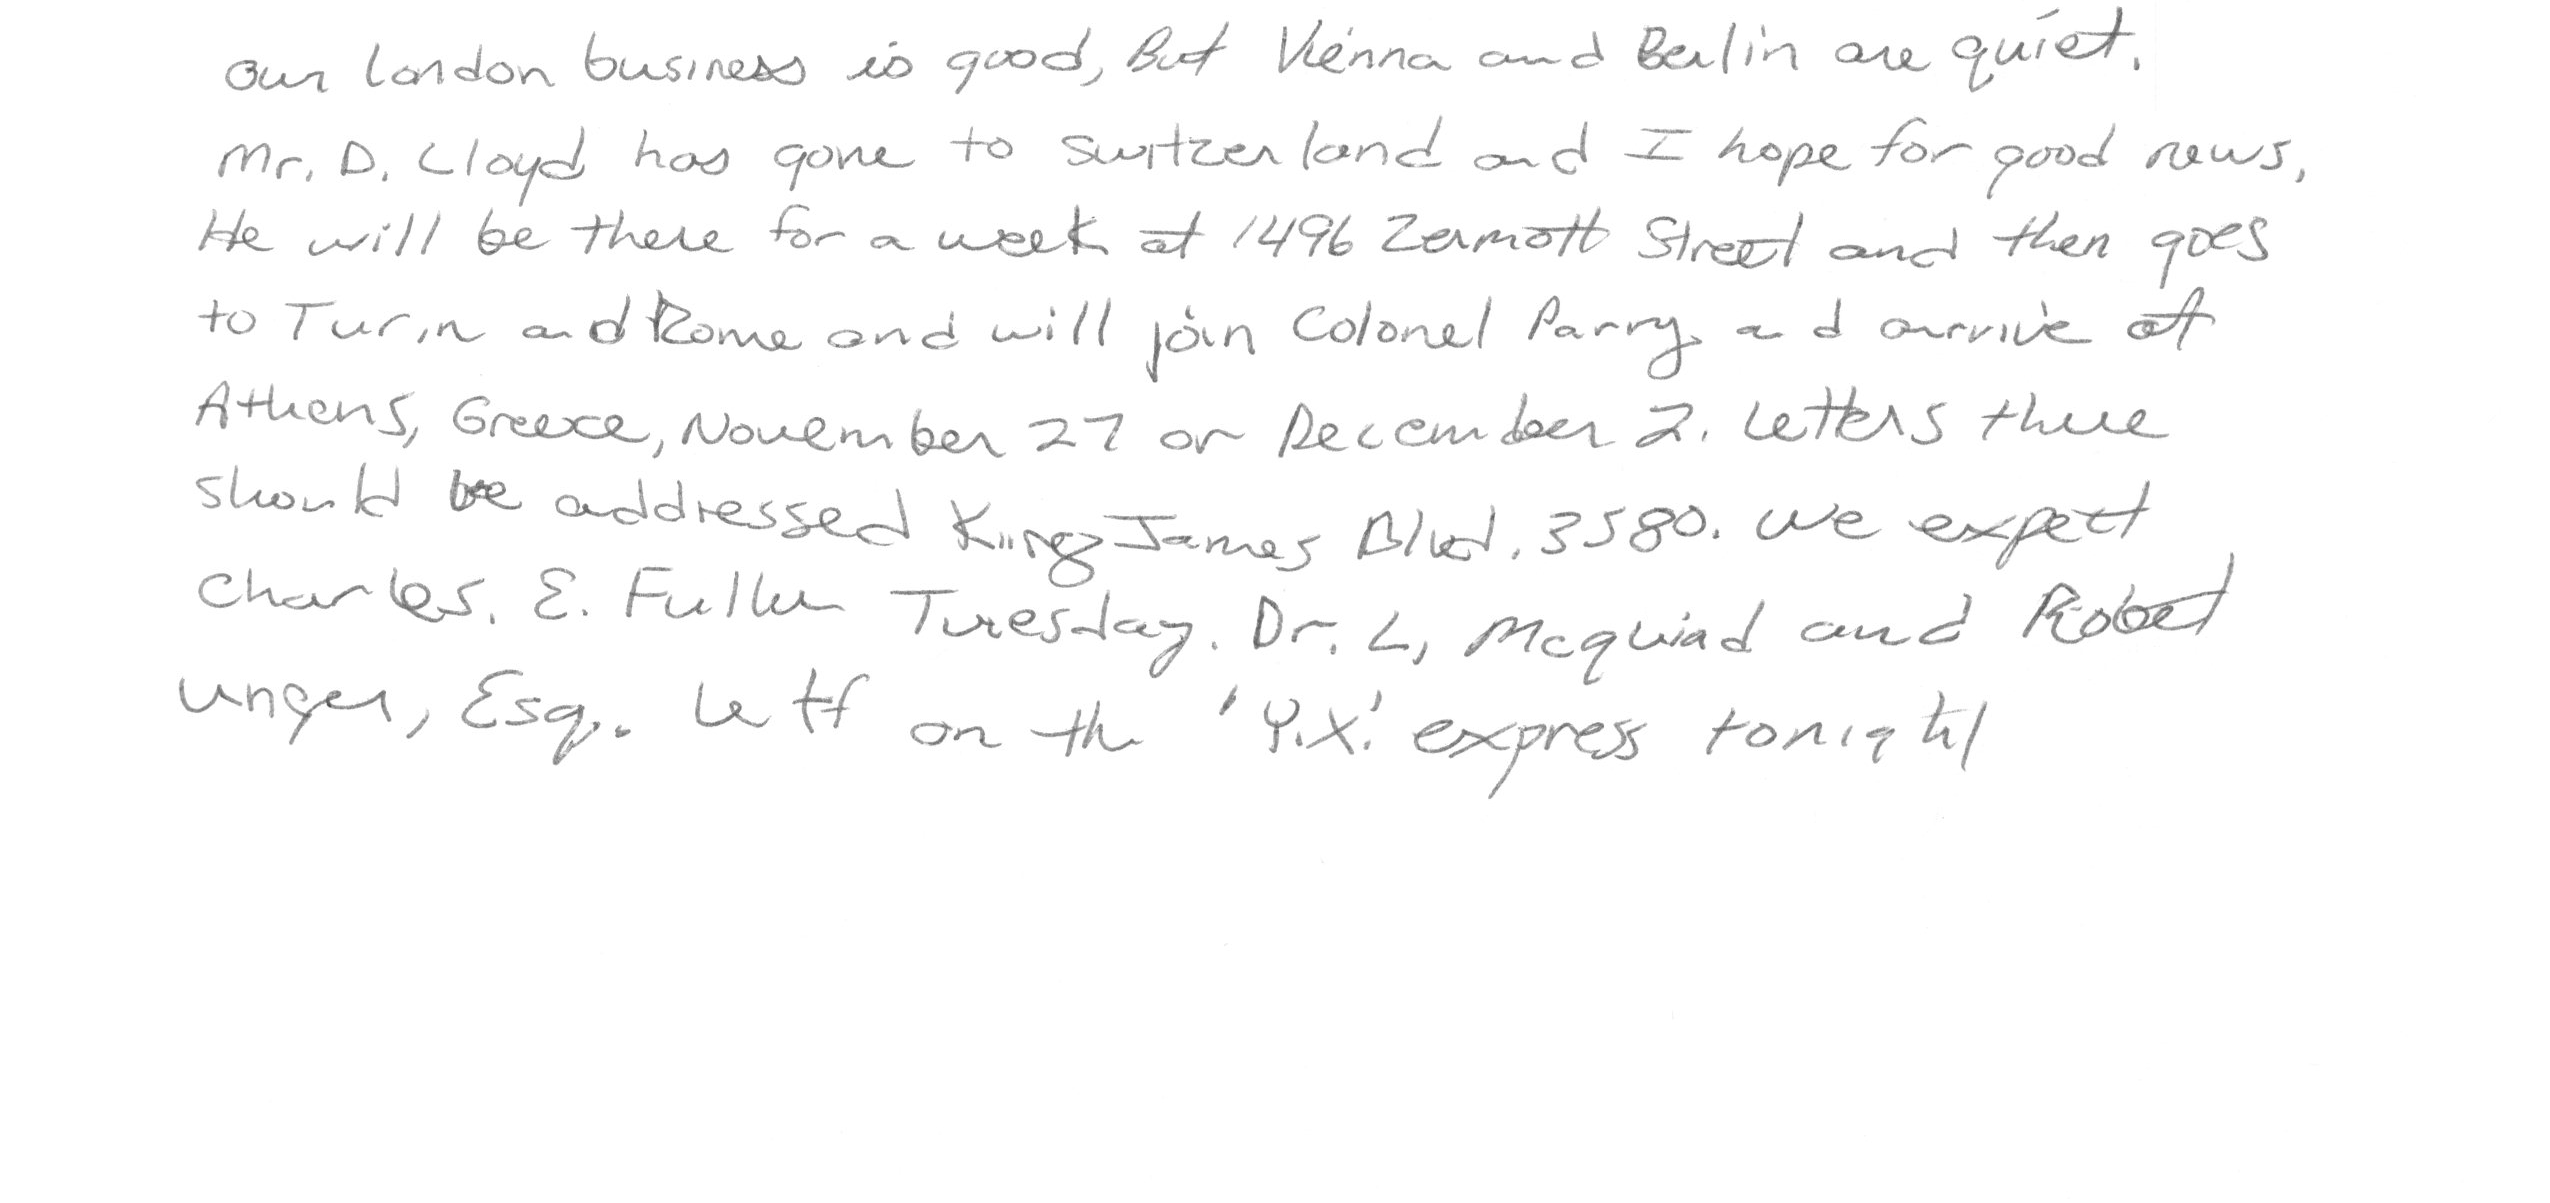 our london business is good, But Vienna and Berlin are quiet.
Mr. D. Lloyd has gone to Switzerland and I hope for good news,
He will be there for a week at 1496 Zermott Street and then goes
to Turin and Rome and will join Colonel Parry and arrive at
Athens, Greece, November 27 or December 2. Letters there
should be addressed King James Blvd. 3580. We expect
Charles. E. Fuller Tuesday. Dr. L, Mcquiad and Robert
unger, Esq.. left on the 'Y.X.' express tonight